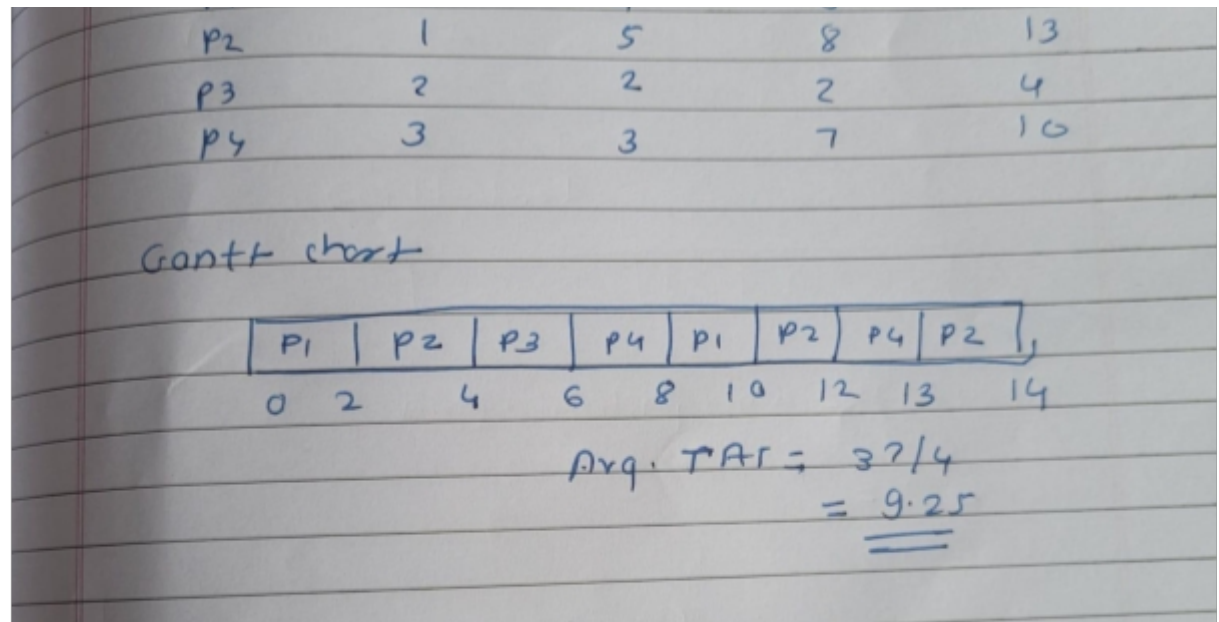 P2 1 5 8 13
P3 2 2 2 4
P4 3 3 7 10
Gantt chart
P1 P2 P3 P4 P1 P2 P4 P2
0 2 4 6 8 10 12 13 14
Avg. TAT = 37/4
= 9.25